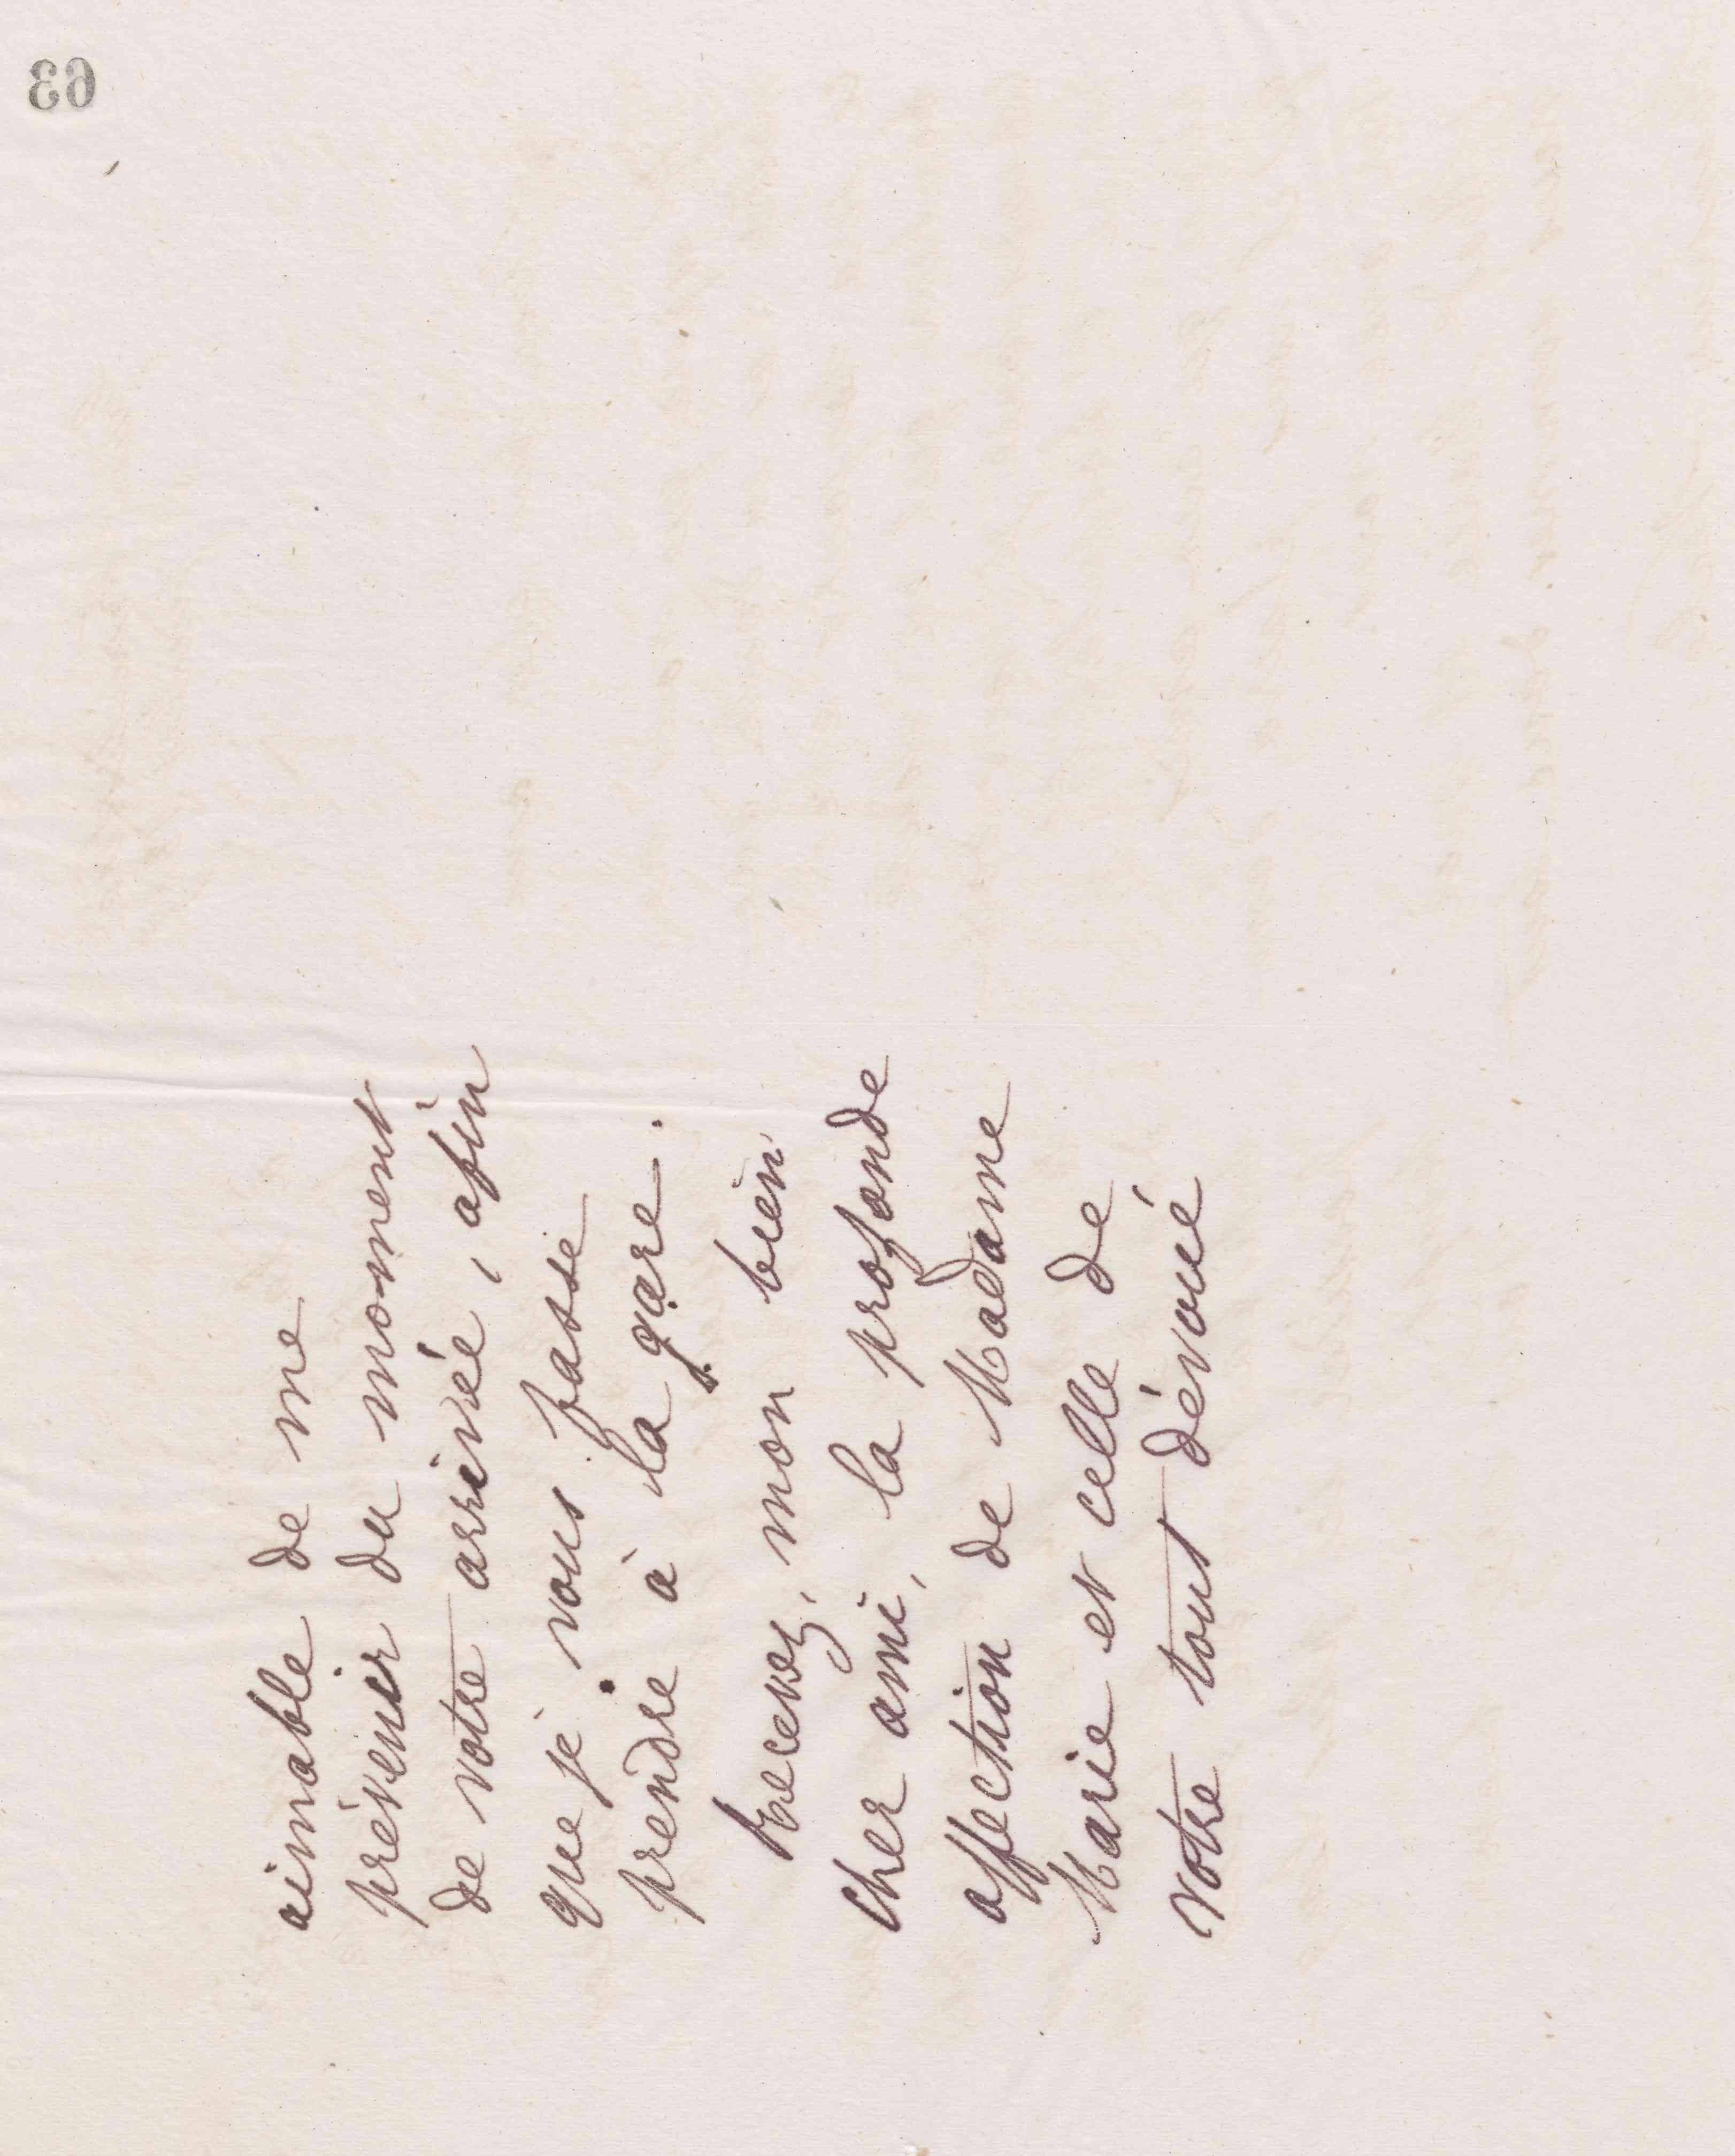 63
aimable de me
prévenir du moment
de votre arrivée, afin
que je vous fasse
prendre à la gare.
Recevez, mon bien
cher ami, la profonde
affection de Madame
Marie et celle de
votre tout dévoué